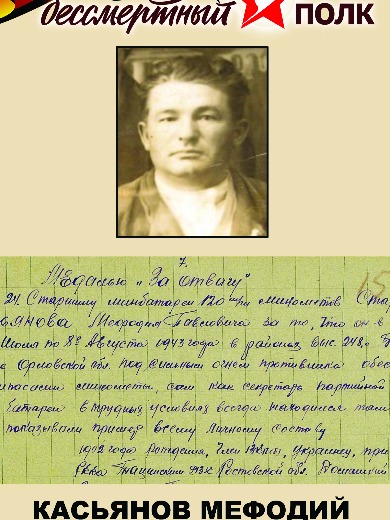 бессмертный ПОЛК
7.
Медалью "За отвагу"
24. Старшину минбатареи 120 м/м минометов Ста
ьянова Мефодия Павловича за то, что он с
Июля по 8е Августа 1943 года в районах выс. 248,
Орловской обл. под сильным огнем противника обес
припасами минометы, сам как секретарь партийной
батареи в трудных условиях всегда находился там
показывал пример всему личному составу
1902 года рождения, член ВКП/б/, украинец, при
РВКа Тацинским РВК Ростовской обл. Домашний
КАСЬЯНОВ МЕФОДИЙ